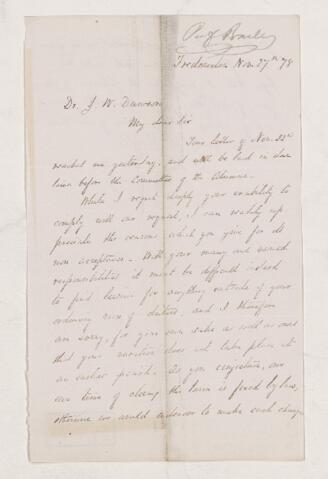 Prof Bailey
Fredericton Nov. 27th 78
Dr. J. W. Dawson
My dear Sir
Your letter of Nov. 22nd
reached me yesterday, and will be laid in due
time before the Committee of the Alumni.
While I regret deeply your inability to
comply with our request, I can readily ap-
preciate the reasons which you give for its
non acceptance. With your many and varied
responsibilities it must be difficult indeed
to find leisure for anything outside of your
ordinary run of duties, and I therefore
am sorry, for your own sake as well as ours
that your vacation does not take place at
an earlier period. As you conjecture, our
own time of closing the term is fixed by law,
otherwise we would endeavor to make such change